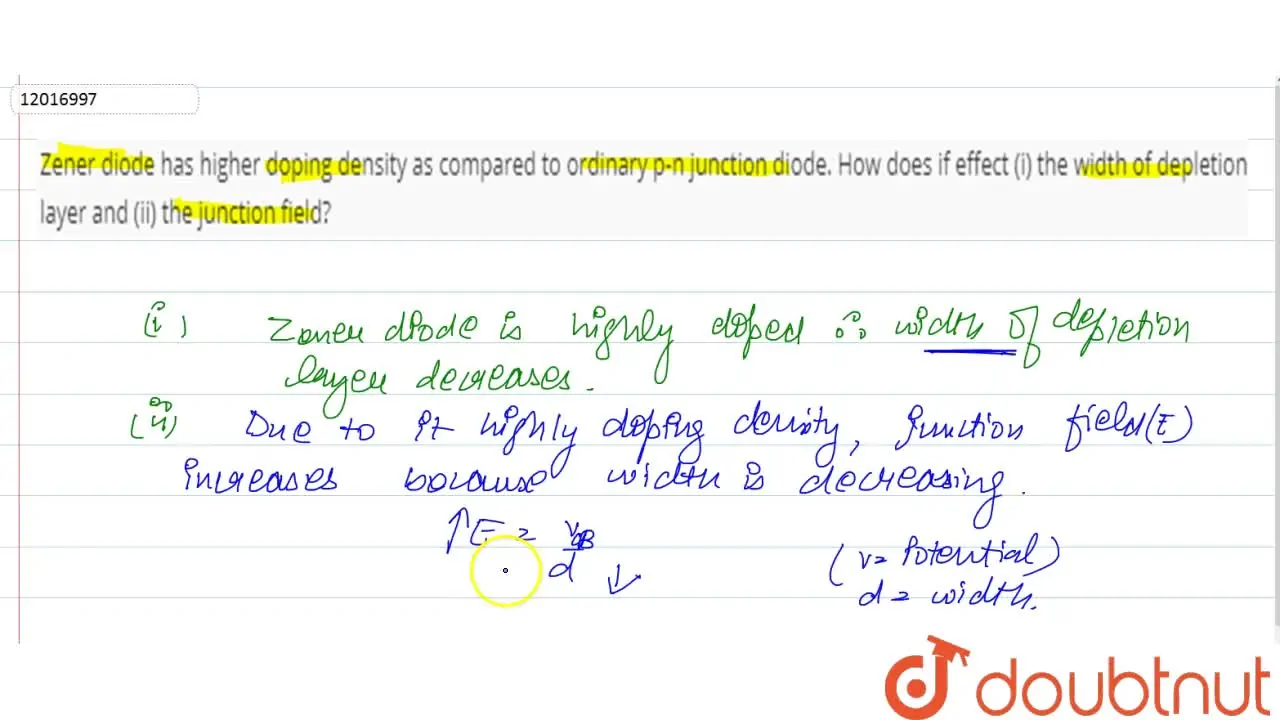 12016997
Zener diode has higher doping density as compared to ordinary p-n junction diode. How does if effect (i) the width of depletion
layer and (ii) the junction field?
(i) Zener diode is highly doped ∴ width of depletion
layer decreases.
(ii) Due to it highly doping density, junction field(E)
increases because width is decreasing.
↑E = V_B/d ↓ (V= Potential)
d = width.
doubtnut